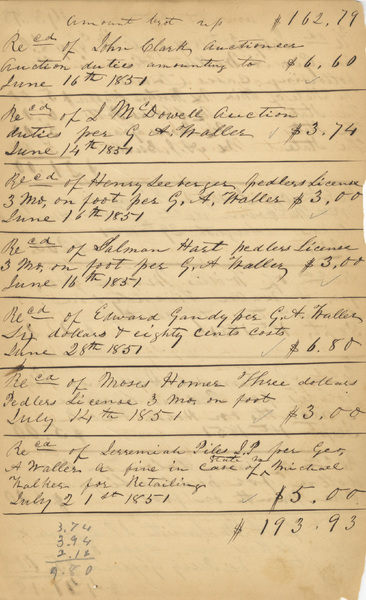 Amount brot up $162.79
Recd of John Clark Auctioneer
Auction duties amounting to $6.60
June 16th 1851
Recd of J McDowell Auction
duties per G A Waller $3.74
June 14th 1851
Recd of Henry Seeberger pedlers License
3 Mo, on foot per G. A. Waller $3.00
June 16th 1851
Recd of Hart pedlers License
3 Mo, on foot per G. A Waller $3.00
June 16th 1851
Recd of Edward Gandy per G. A. Waller
Six dollars & eighty cents Costs
June 28th 1851 $6.80
Recd of Moses Homer Three dollars
Pedlers License 3 Mo, on foot
July 14th 1851 $3.00
Recd of Jeremiah Piles J.P per Geo
A Waller a fine in case of State vs Michael
Walker for Retailing
July 21st 1851 $5.00
$193.93
3.74
3.94
2.12
9.80